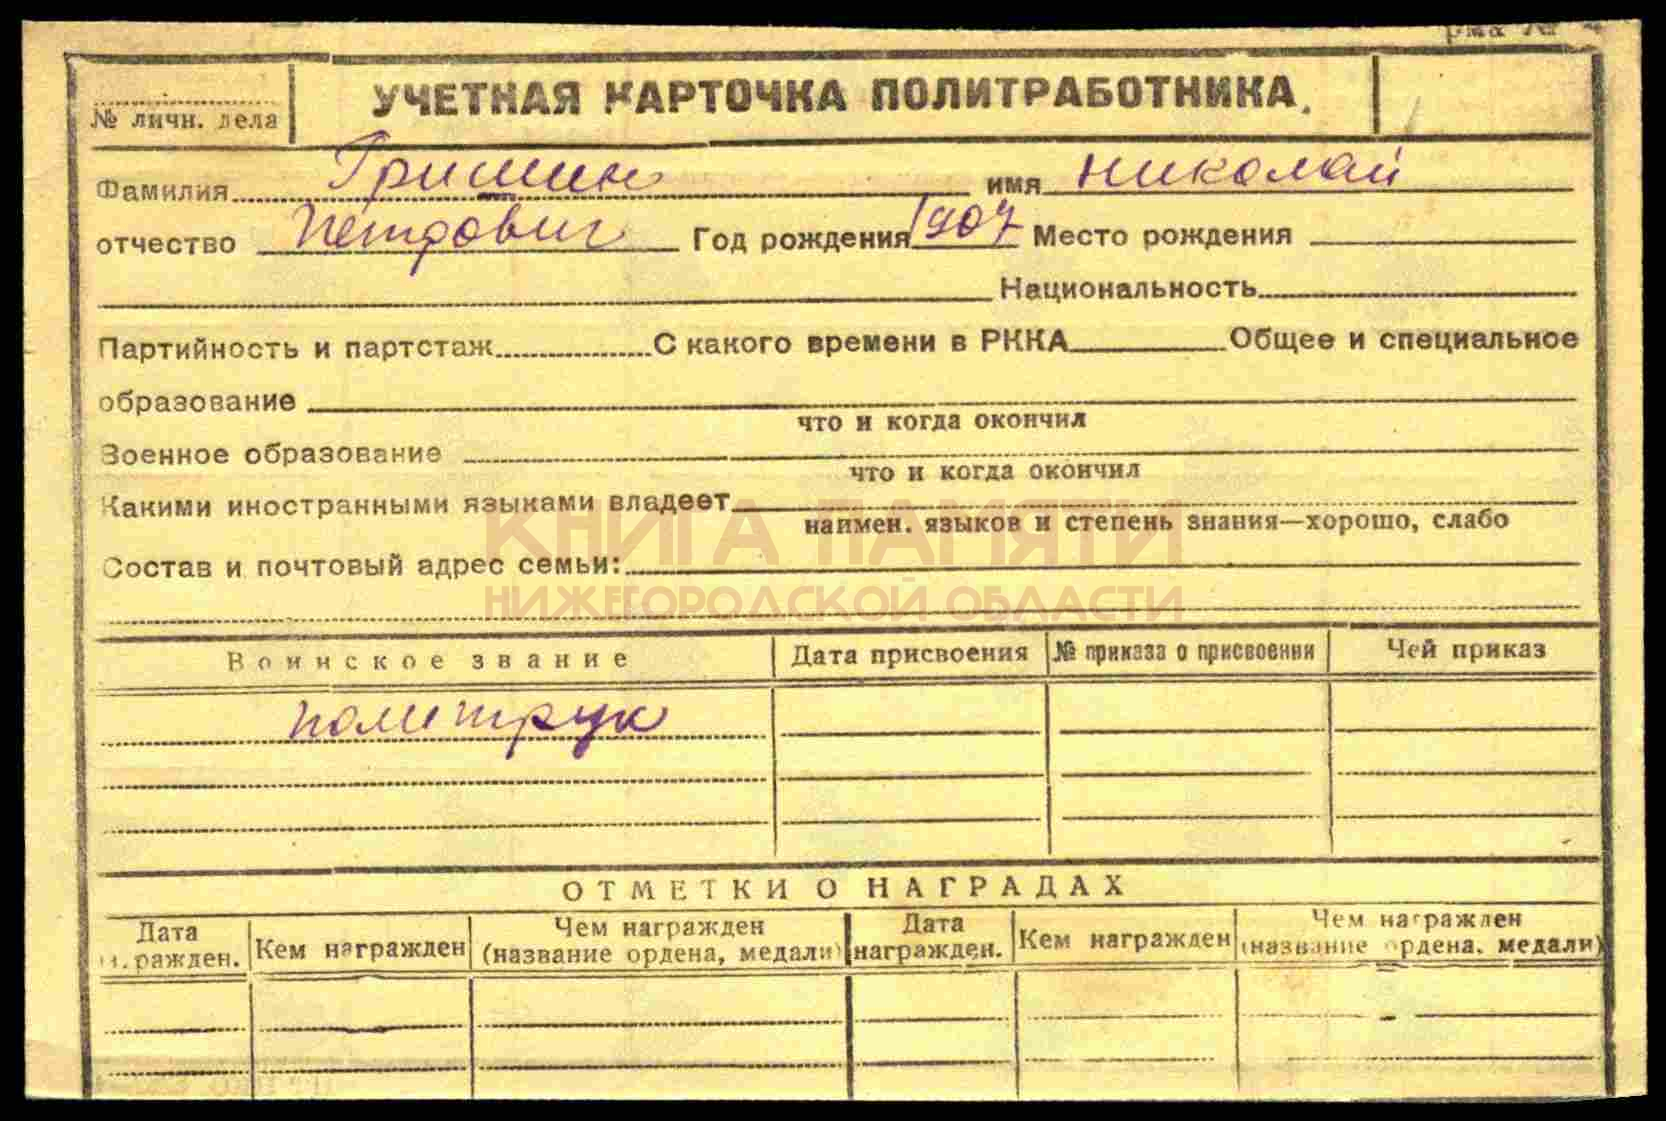 УЧЕТНАЯ КАРТОЧКА ПОЛИТРАБОТНИКА.
№ личн. дела
Фамилия Гришин имя Николай
отчество Петрович Год рождения 1907 Место рождения
Национальность
Партийность и партстаж С какого времени в РККА Общее и специальное
образование
что и когда окончил
Военное образование
что и когда окончил
Какими иностранными языками владеет
наимен. языков и степень знания—хорошо, слабо
КНИГА ПАМЯТИ
Состав и почтовый адрес семьи:
НИЖЕГОРОДСКОЙ ОБЛАСТИ
Воинское звание Дата присвоения № приказа о присвоении Чей приказ
политрук
ОТМЕТКИ О НАГРАДАХ
Дата награжден. Кем награжден Чем награжден (название ордена, медали) Дата награжден. Кем награжден Чем награжден (название ордена, медали)